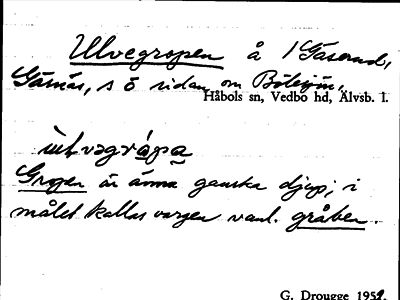 Ulvegropen å 1 Gåserud,
Gåsnäs, s ö sidan om Bölesjön,
Håbols sn, Vedbo hd, Älvsb. l.
ùl·vəgrå̀pa
Gropen är ännu ganska djup; i
målet kallas vargen vanl. gråben.
G. Drougge 1952.